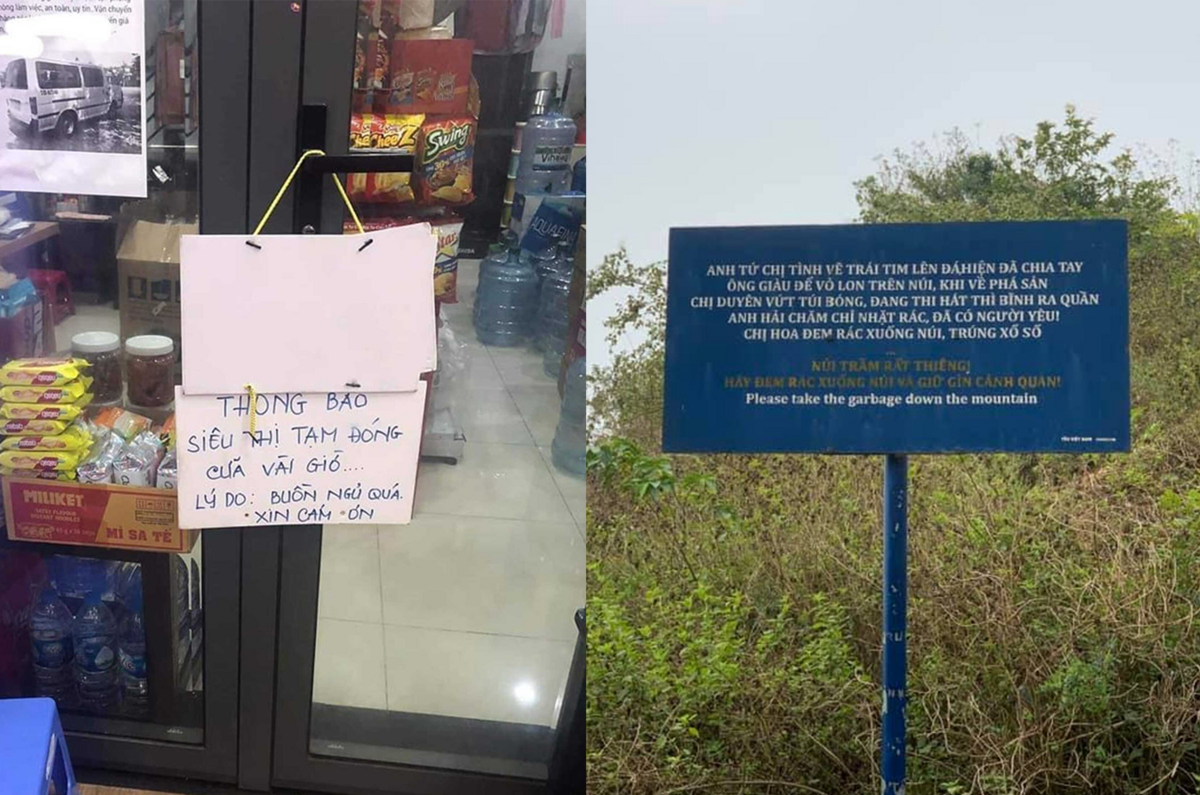 làm việc, an toàn, uy tín. Vận chuyển
CheeZ
Swing
Vihawa
AQUAFINA
THÔNG BÁO
SIÊU THỊ TẠM ĐÓNG
CƯẢ VÀI GIỜ....
LÝ DO: BUỒN NGỦ QUÁ.
XIN CẢM ƠN
MILIKET
INSTANT NOODLES
MÌ SA TẾ
ANH TỨ CHỊ TÌNH VẼ TRÁI TIM LÊN ĐÁ,HIỆN ĐÃ CHIA TAY
ÔNG GIÀU ĐỂ VỎ LON TRÊN NÚI, KHI VỀ PHÁ SẢN
CHỊ DUYÊN VỨT TÚI BÓNG, ĐANG THI HÁT THÌ BĨNH RA QUẦN
ANH HẢI CHĂM CHỈ NHẶT RÁC, ĐÃ CÓ NGƯỜI YÊU!
CHỊ HOA ĐEM RÁC XUỐNG NÚI, TRÚNG XỔ SỐ
...
NÚI TRẦM RẤT THIÊNG!
HÃY ĐEM RÁC XUỐNG NÚI VÀ GIỮ GÌN CẢNH QUAN!
Please take the garbage down the mountain